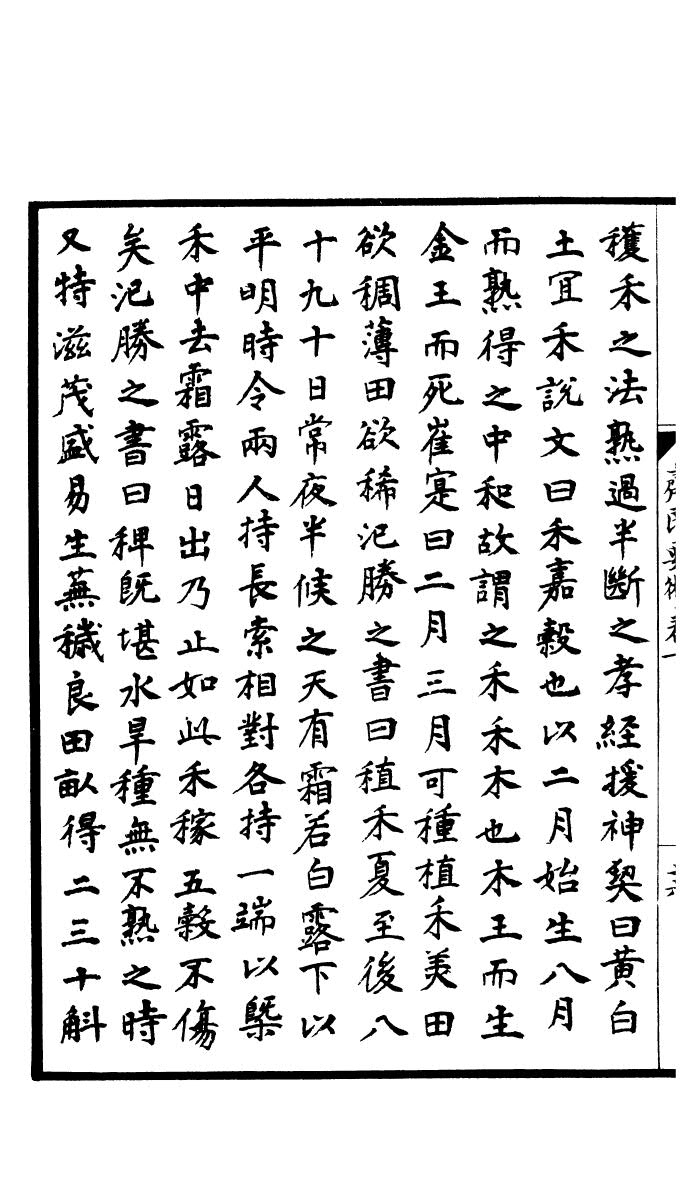 穫禾之法熟過半斷之孝經援神契曰黃白
土宜禾說文曰禾嘉穀也以二月始生八月
而熟得之中和故謂之禾禾木也木王而生
金王而死崔寔曰二月三月可種植禾美田
欲稠薄田欲稀氾勝之書曰植禾夏至後八
十九十日常夜半候之天有霜若白露下以
平明時令兩人持長索相對各持一端以槩
禾中去霜露日出乃止如此禾稼五穀不傷
矣氾勝之書曰稗既堪水旱種無不熟之時
又特滋茂盛易生蕪穢良田畝得二三十斛